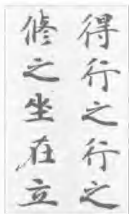 得行之行之
修之坐在立